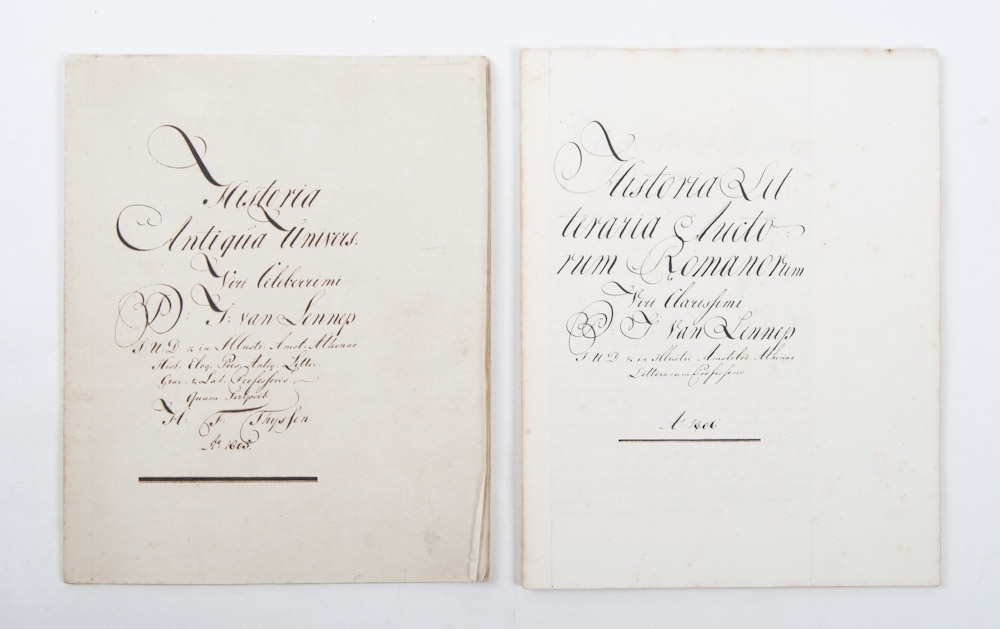 Historia
Antiqua Univers.
Viri Celeberrimi
D: J: van Lennep
J. U. D. & in Illustr. Amst. Athenaeo
Hist. Eloq. Poes. Antiq. Litter.
Grae. & Lat. Professoris
Quam Scripsit
H: F: Thyssen
Ao 1805.
Historia Lit-
teraria Aucto-
rum Romanorum
Viri Clarissimi
D J van Lennep
J. U. D. & in Illustri Amstelod. Athenaeo
Litterarum Professoris
Ao 1806